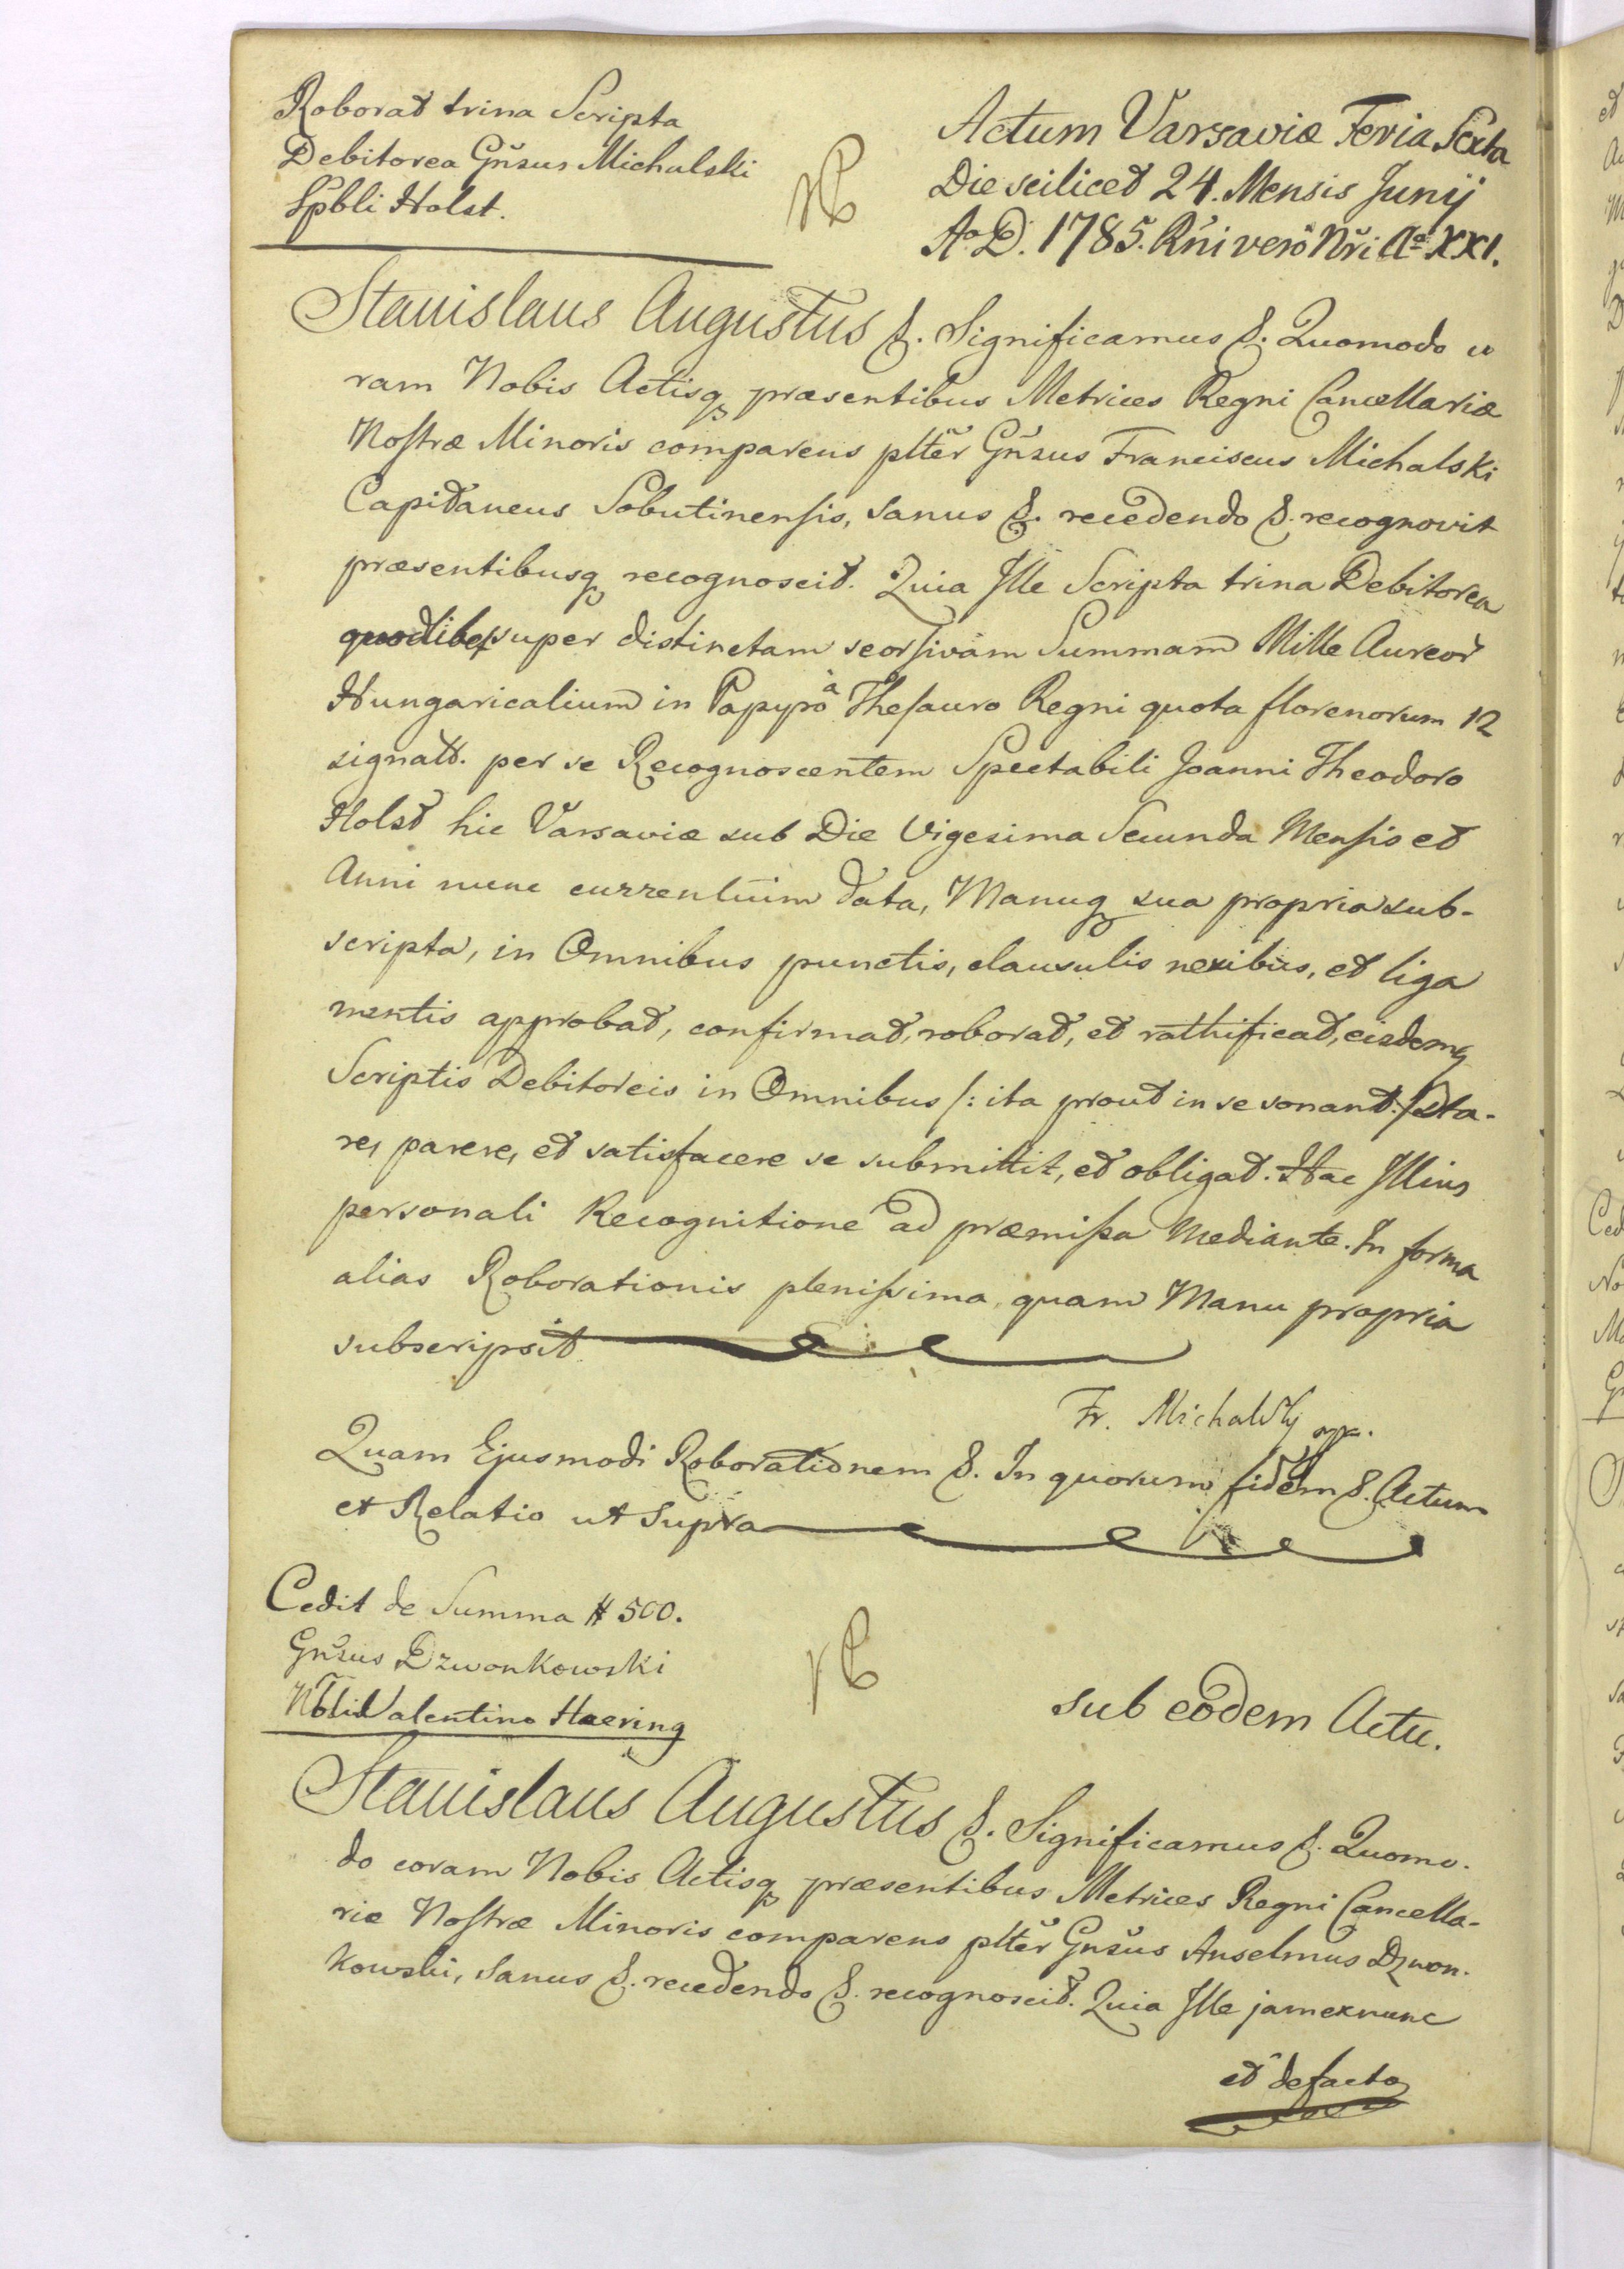 Roborat trina Scripta
Debitorea Gñsus Michalski
Spbli Holst.
Actum Varsaviæ Feria Sexta
Die scilicet 24. Mensis Junij
Aº D. 1785. Rñi verò Nři Aº XXI.
Stanislaus Augustus &. Significamus &. Quomodo co
ram Nobis Actisq præsentibus Metrices Regni Cancellariæ
Nostræ Minoris comparens pltěr Gñsus Franciscus Michalski
Capitaneus Sobutinensis, sanus &. recedendo &. recognovit
præsentibusq recognoscit. Quia Ille Scripta trina Debitorea
quodlibet super distinctam seorsivam Summam Mille Aureoř
Hungaricalium in Papyro à Thesauro Regni quota florenorum 12
signatt. per se Recognoscentem Spectabili Joanni Theodoro
Holst hic Varsaviæ sub Die Vigesima Secunda Mensis et
Anni nunc currentium data, Manuq sua propria sub-
scripta, in Omnibus punctis, clausulis nexibus, et liga
mentis approbat, confirmat, roborat, et rathificat, eisdemq
Scriptis Debitoreis in Omnibus /: ita prout in se sonant :/ sta-
re, parere, et satisfacere se submittit, et obligat. Hac Illius
personali Recognitione ad præmissa Mediante. In forma
alias Roborationis plenissima, quam Manu propria
subscripsit
Fr. Michalsky mp.
Quam Ejusmodi Roborationem &. In quorum fidem &. Actum
et Relatio ut Supra
Cedit de Summa # 500.
Gñsus Dzwonkowski
Nbli Valentino Haering
sub eodem Actu.
Stanislaus Augustus &. Significamus &. Quomo-
do coram Nobis Actisq præsentibus Metrices Regni Cancella-
riæ Nostræ Minoris comparens pltěr Gñsus Anselmus Dzwon-
kowski, sanus &. recedendo &. recognoscit. Quia Ille jam ex nunc
et de facto